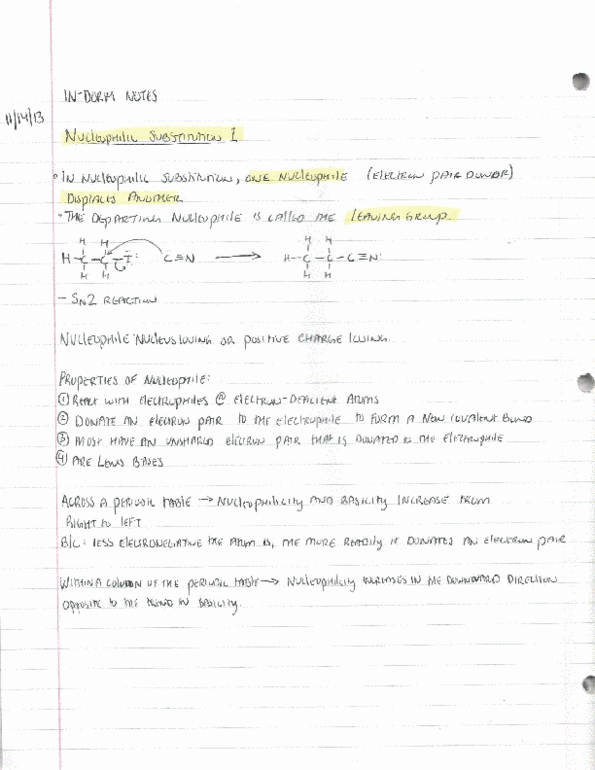 IN-DORM NOTES
11/14/13
NUCLEOPHILIC SUBSTITUTION 1
• IN NUCLEOPHILIC SUBSTITUTION, ONE NUCLEOPHILE (ELECTRON PAIR DONOR)
DISPLACES ANOTHER
• THE DEPARTING NUCLEOPHILE IS CALLED THE LEAVING GROUP.
H H
H-C-C-I: C≡N → H-C-C-C≡N:
H H
- SN2 REACTION
NUCLEOPHILE: NUCLEUS LOVING OR POSITIVE CHARGE LOVING.
PROPERTIES OF NUCLEOPHILE:
① REACT WITH ELECTROPHILES @ ELECTRON-DEFICIENT ATOMS
② DONATE AN ELECTRON PAIR TO THE ELECTROPHILE TO FORM A NEW COVALENT BOND
③ MOST HAVE AN UNSHARED ELECTRON PAIR THAT IS DONATED TO THE ELECTROPHILE
④ ARE LEWIS BASES
ACROSS A PERIODIC TABLE → NUCLEOPHILICITY AND BASICITY INCREASE FROM
RIGHT TO LEFT
B/C: LESS ELECTRONEGATIVE THE ATOM IS, THE MORE READILY IT DONATES AN ELECTRON PAIR
WITHIN A COLUMN OF THE PERIODIC TABLE → NUCLEOPHILICITY INCREASES IN THE DOWNWARD DIRECTION
OPPOSITE TO THE TREND IN BASICITY.